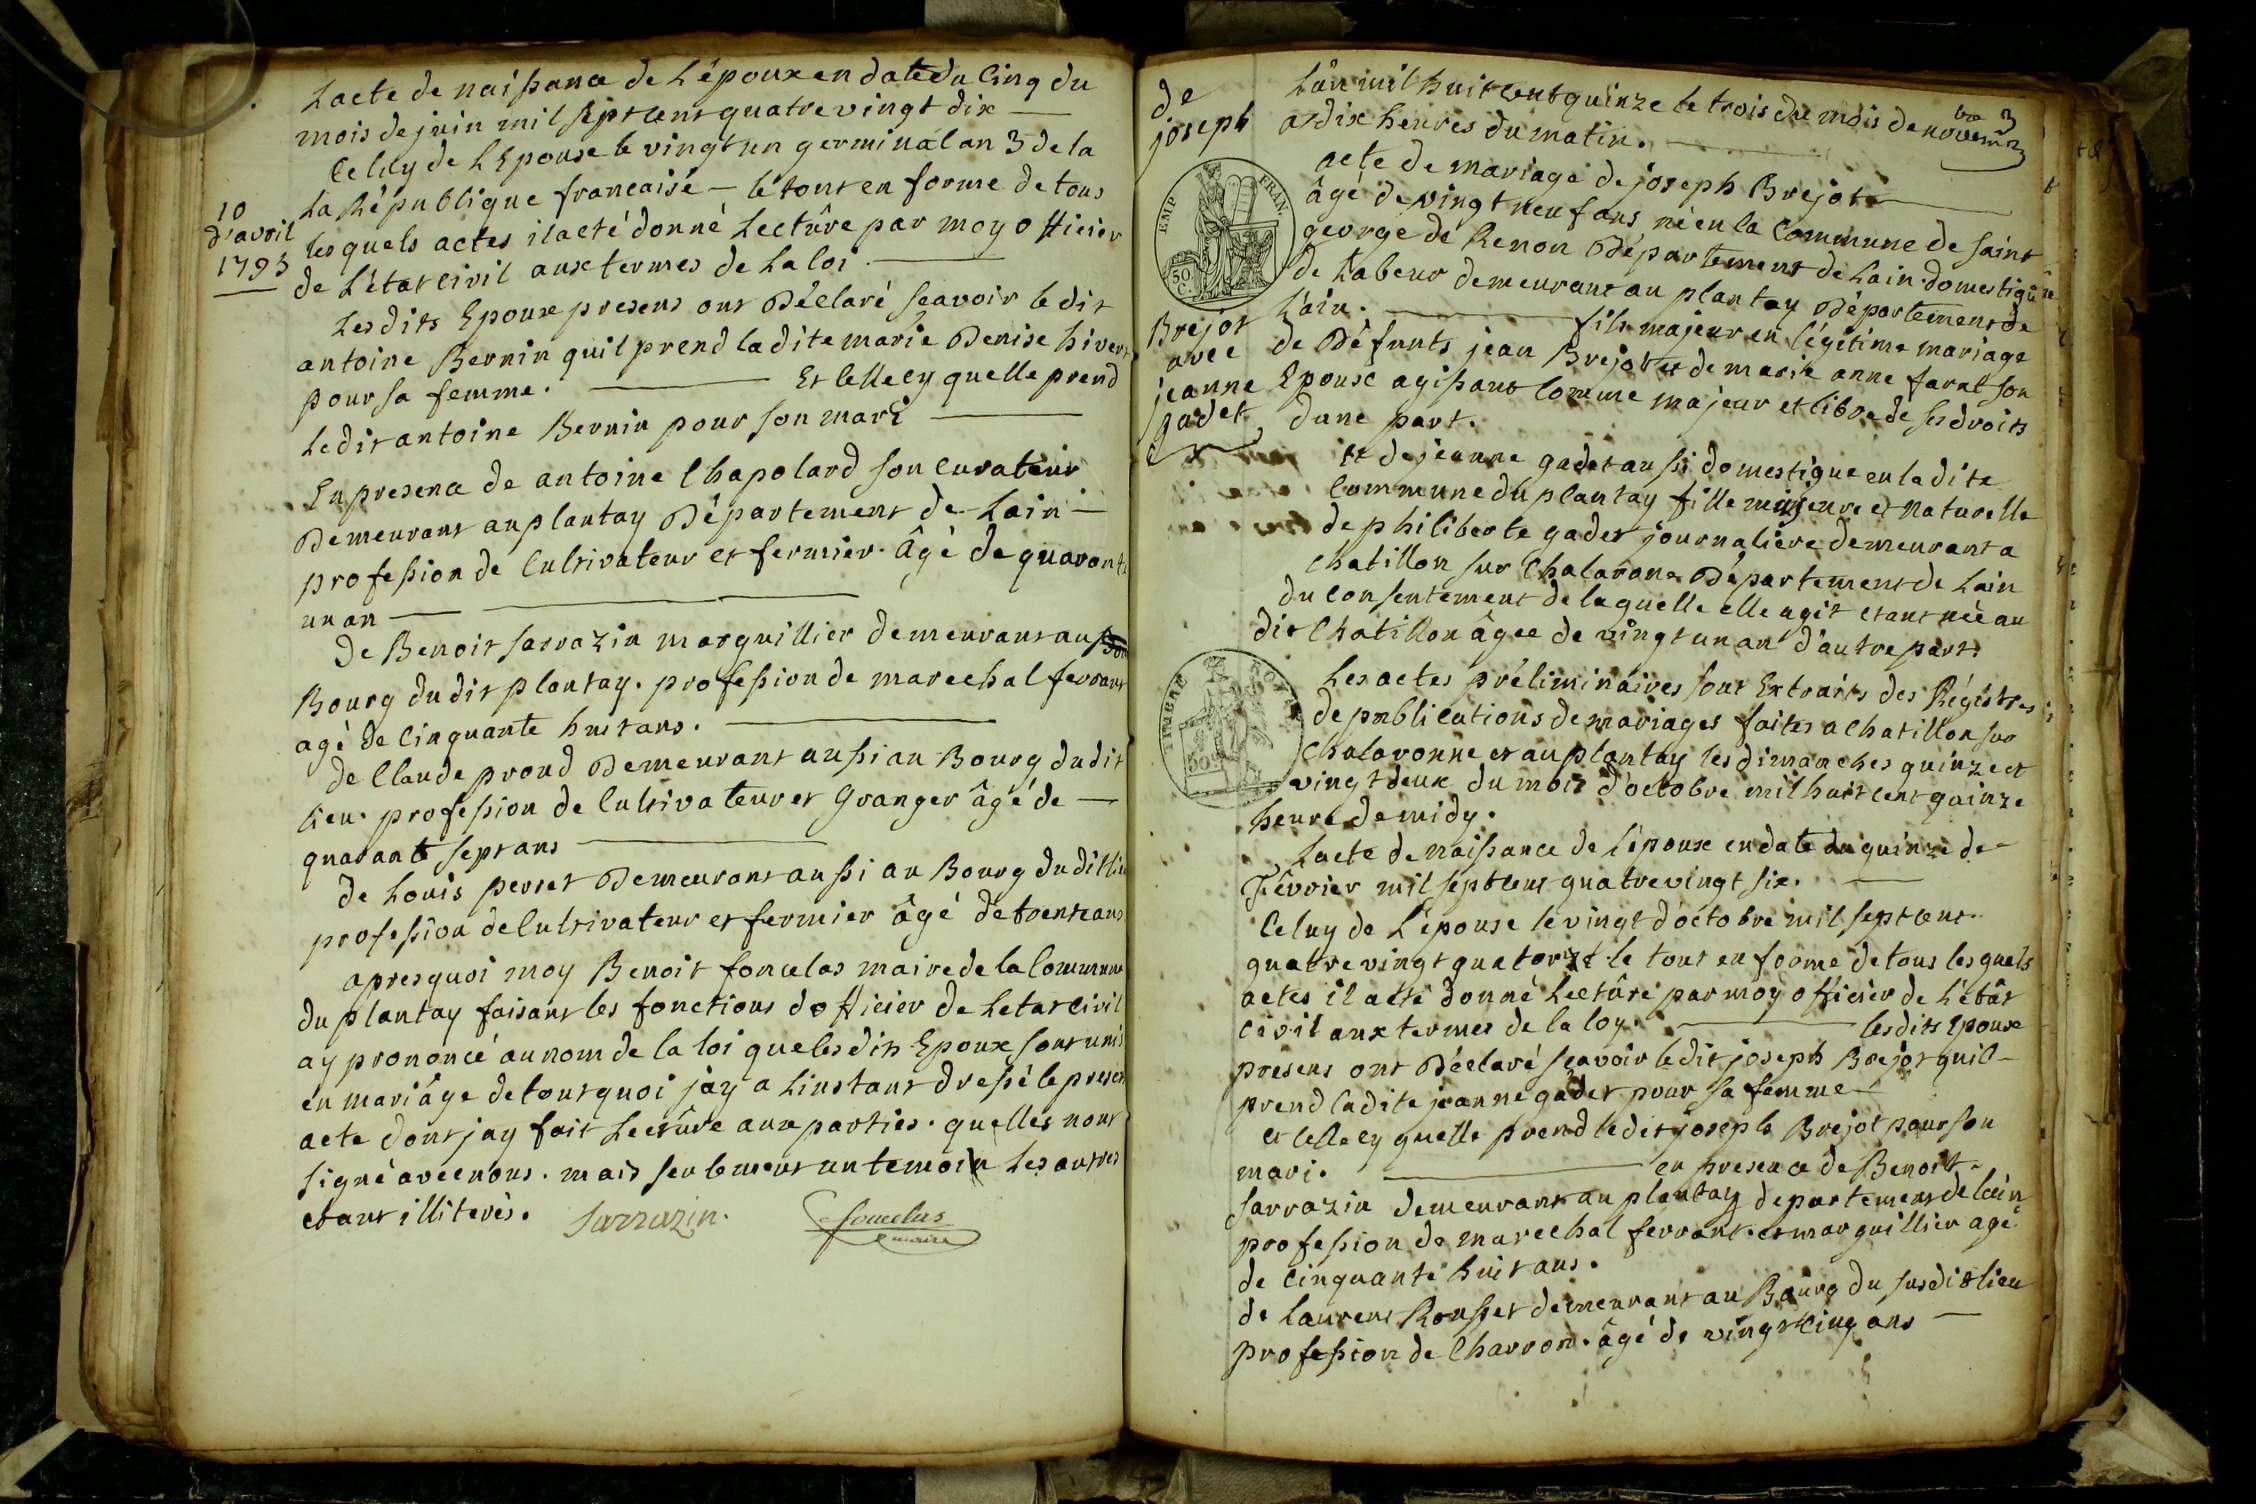 Lacte de naissance de L'époux en date du Cinq du
mois de juin mil sept cent quatre vingt dix
Celuy de L'Epouse le vingt un germinal an 3 de la
La République française – le tout en forme de tous
10
d'avril
1793
les quels actes il a eté donné Lectûre par moy officier
de L'état civil aux termes de la loi
Les dits Epoux presens ont Déclaré scavoir le dit
antoine Bernin quil prend la dite marie Denise hivert
pour sa femme. Et celle cy quelle prend
Le dit antoine Bernin pour son mari
En presence de antoine Chapolard son curateur
Demeurant au plantay Département de Lain
profession de Cultivateur et fermier. âgé de quarante
un an
de Benoit sarrazin marguillier demeurant au
Bourg du dit plantay. profession de marechal ferrant
agé de cinquante huit ans.
de Claude proud Demeurant aussi au Bourg du dit
lieu. profession de Cultivateur et Granger âgé de
quarante sept ans
de Louis perret Demeurant aussi au Bourg du dit lieu
profession de Cultivateur et fermier âgé de trente ans
apres quoi moy Benoit foncelas maire de la Commune
du plantay faisant les fonctions dofficier de Letat Civil
ay prononcé au nom de la loi que les dits Epoux sont unis
en mariâge de tout quoi jay a linstant dressé le present
acte dont jay fait Lectûre aux parties. quelles nont
signé avec nous. mais seulement un temoin Les autres
etant illiterés. Sarrazin. foncelas
maire
3
de
joseph
Brejot
avec
jeanne
gadet
EMP FRAN.
50 C.
TIMBRE ROYAL
50
Lân mil huit cent quinze le trois du mois de novembre
a dix heures du matin.
acte de mariage de joseph Brejot
âgé de vingt neuf ans né en la Commune de saint
george de Renon Département de Lain. domestique
de Labeur demeurant au plantay Département de
Lain. fils majeur en légitime mariage
de Défunts jean Brejot et de marie anne farat son
Epouse agissant Comme majeur et libre de ses droits
dune part.
et de jeanne gadet aussi domestique en la dite
Commune du plantay fille mineure et naturelle
de philiberte gadet journaliere demeurant a
Chatillon sur Chalarone Département de Lain
du Consentement de laquelle elle agit etant née au
dit Chatillon âgée de vingt un an d'autre part.
Les actes préliminaires sont Extraits des Régistres
de publications de mariages faites a Chatillon sur
Chalaronne et au plantay les dimanches quinze et
vingt deux du mois d'octobre mil huit cent quinze
heure de midy.
Lacte de naissance de l'époux en date du quinze de
Février mil sept cent quatre vingt six.
Celuy de L'épouse le vingt d'octobre mil sept cent
quatre vingt quatorze le tout en forme de tous les quels
actes il a eté donné Lectûre par moy officier de L'etât
Civil aux termes de la loy. les dits Epoux
presens ont Déclaré scavoir le dit joseph Brejot quil
prend la dite jeanne gadet pour sa femme
et celle cy quelle prend le dit joseph Brejot pour son
mari. en presence de Benoit
sarrazin demeurant au plantay departement de lain
profession de marechal ferrant. et marguillier agé
de cinquante huit ans.
de Laurent Rousset demeurant au Bourg du susdit lieu
profession de Charron. âgé de vingt Cinq ans